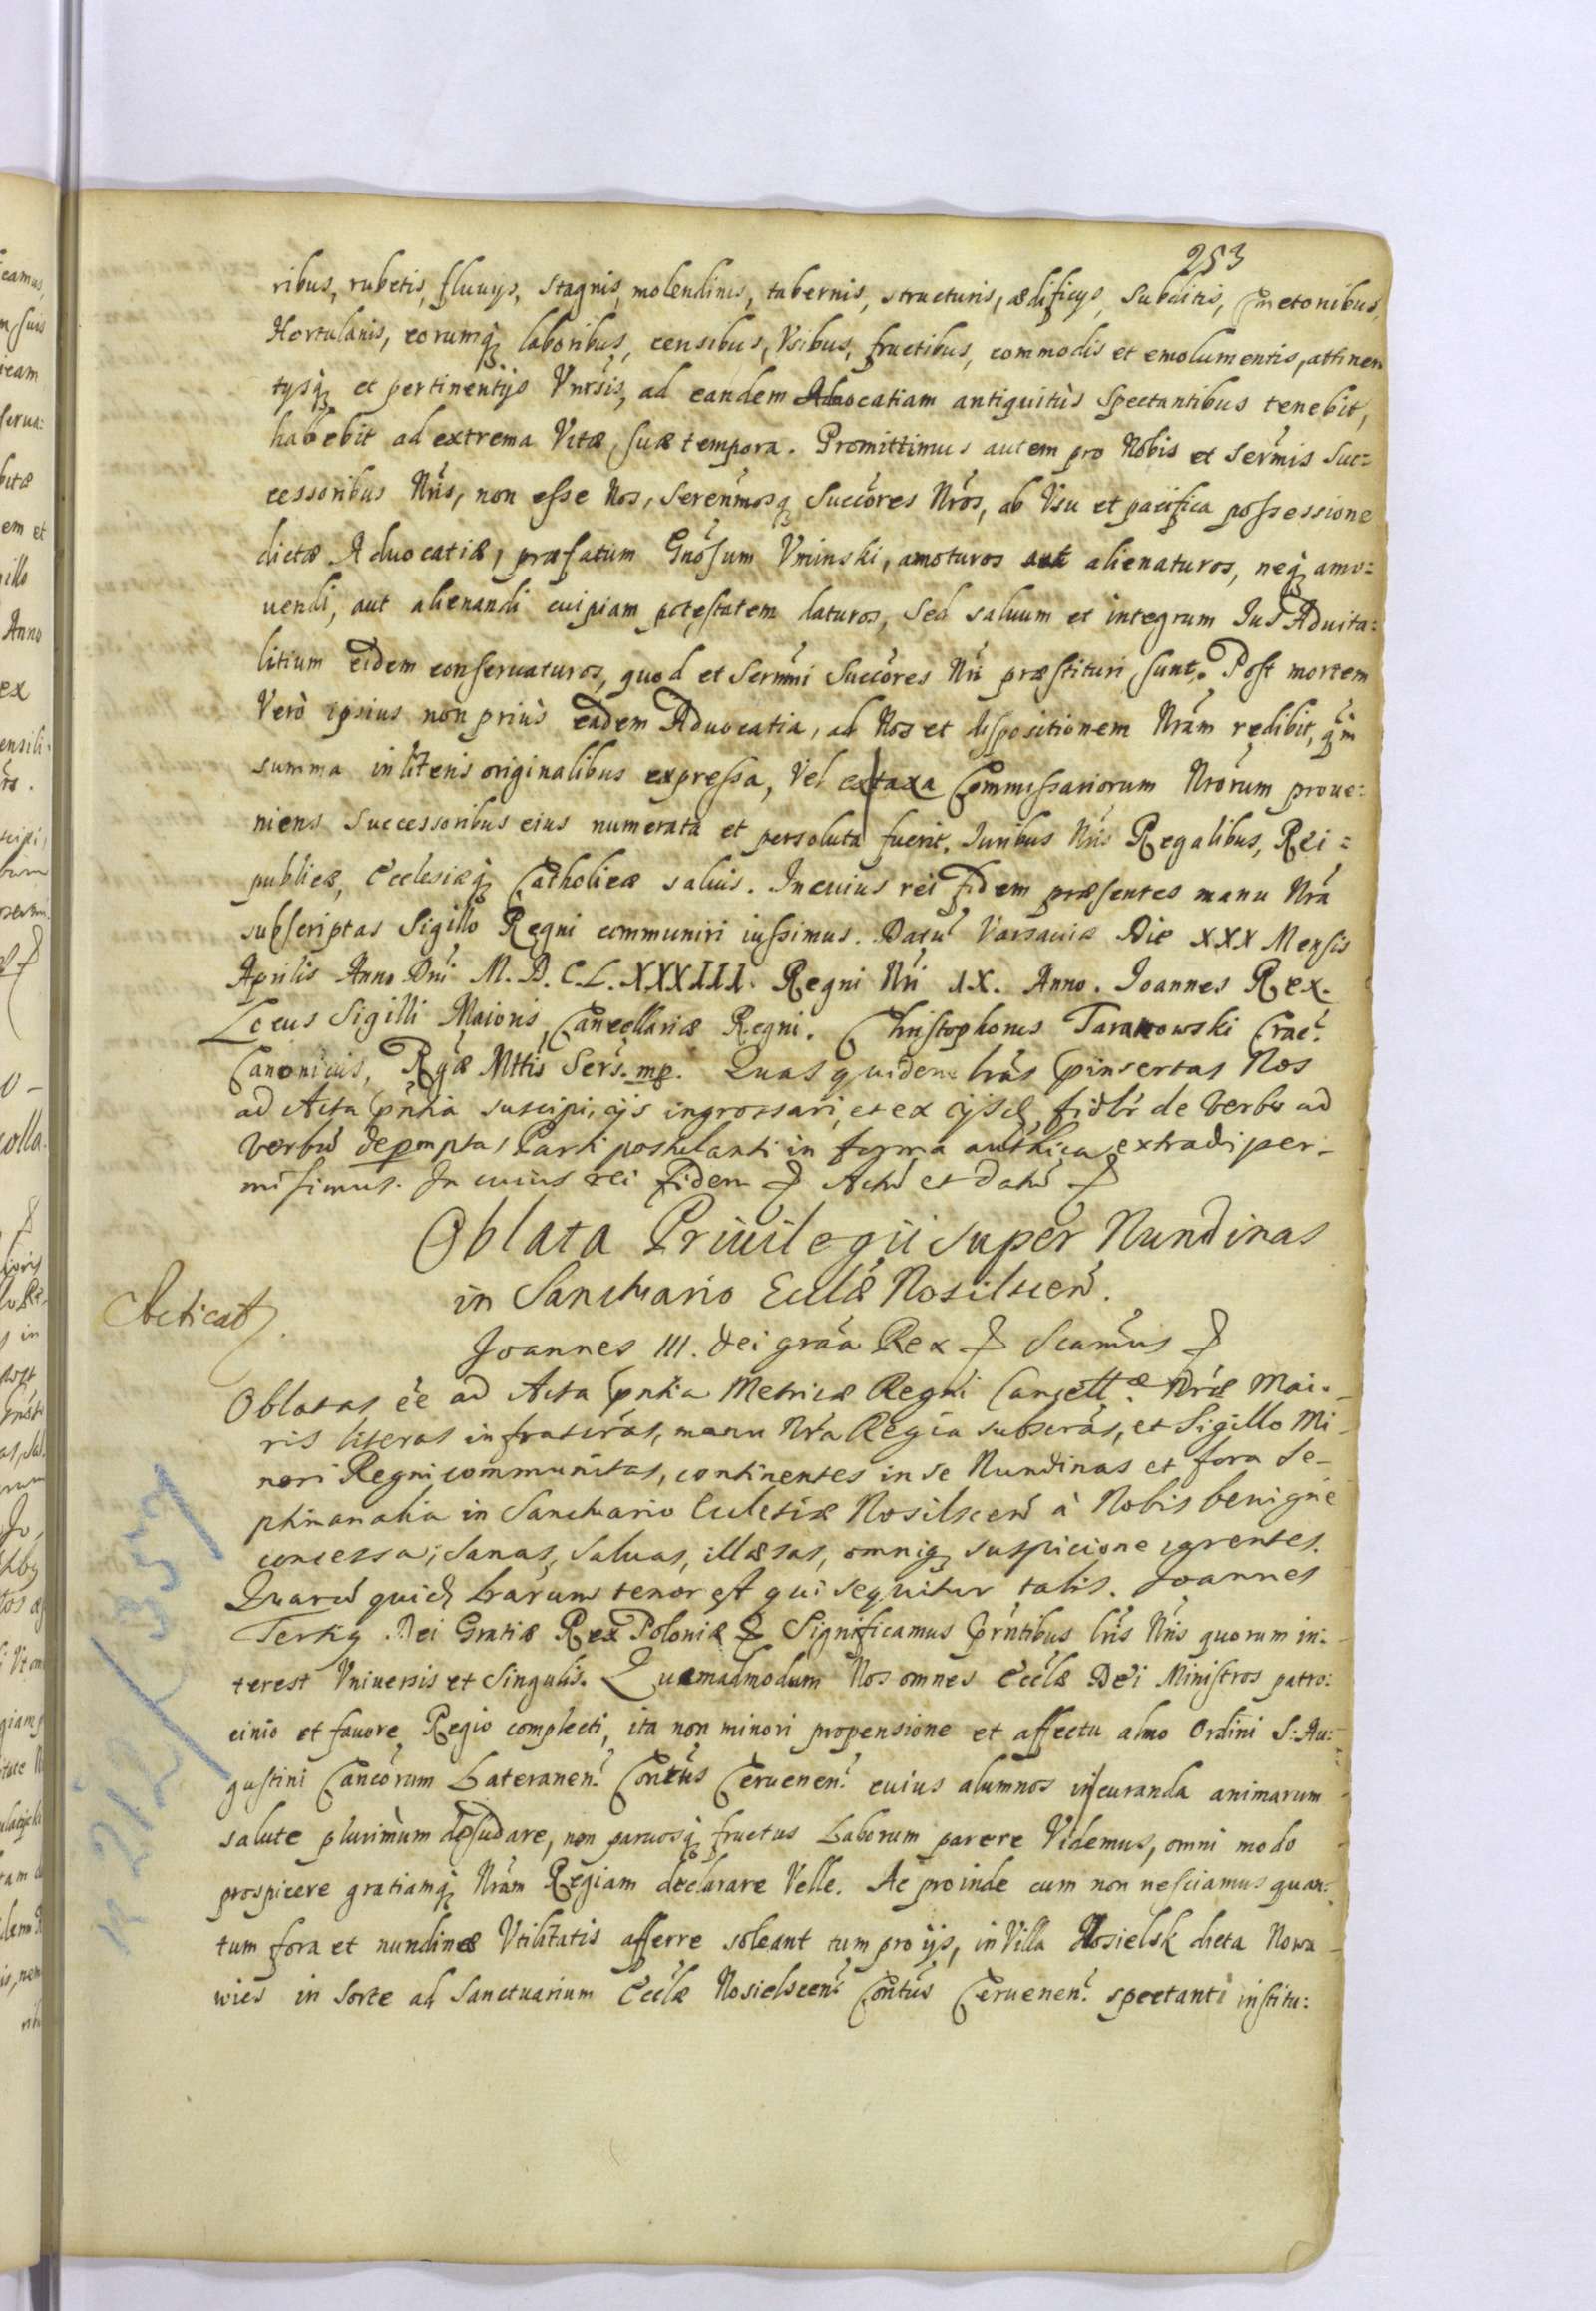 253
ribus, rubetis, fluuijs, stagnis, molendinis, tabernis, structuris, ædificijs, subditis, Cmetonibus,
Hortulanis, eorumq; laboribus, censibus, Vsibus, fructibus, commodis et emolumentis, attinen
tijsq; et pertinentijs Vnrsis, ad eandem Aduocatiam antiquitùs spectantibus tenebit,
habebit ad extrema Vitæ suæ tempora. Promittimus autem pro Nobis et Sermis Suc=
cessoribus Nris, non esse Nos, Serenmosq; Succores Nros, ab Vsu et pacifica possessione
dictæ Aduocatiæ, præfatum Gnosum Vminski, amoturos aut alienaturos, neq; amo=
uendi, aut alienandi cuipiam potestatem daturos, sed saluum et integrum Ius Aduita=
litium eidem conseruaturos, quod et Sermi Succores Nri præstituri sunt. Post mortem
Verò ipsius non priùs eadem Aduocatia, ad Nos et dispositionem Nram redibit, qm
summa in literis originalibus expressa, Vel ex taxa Commissariorum Nrorum proue=
niens Successoribus eius numerata et persoluta fuerit. Iuribus Nris Regalibus, Rei=
publicæ, Ecclesiæq; Catholicæ saluis. In cuius rei fidem præsentes manu Nra
subscriptas Sigillo Regni communiri iussimus. Datu Varsauiæ Die XXX Mensis
Aprilis Anno Dni M.D.C.L.XXXIII. Regni Nri IX. Anno. Ioannes Rex.
Locus Sigilli Maioris Cancellariæ Regni. Christophorus Taranowski Crac.
Canonicus, Rgæ Mttis Sers. mp. Quas quidem lras pinsertas Nos
ad Acta pntia suscipi, ijs ingrossari, et ex ijsd fidlr de verbo ad
verbu depromptas Parti postulanti in forma authica extradi per-
misimus. In cuius rei fidem & Actu et datu &
Oblata Priuilegii super Nundinas
in Sanctuario Eccla Nosilscen.
Acticat.
Joannes III. Dei graa Rex & Scamus &
Oblatas ee ad Acta pntia Metricæ Regni Cancell. Nræ Maio-
ris literas infrascras, manu Nra Regia subscras, et Sigillo Mi-
nori Regni communitas, continentes in se Nundinas et fora se-
ptimanalia in Sanctuario Eclesiæ Nosilscen à Nobis benigne
concessa; sanas, saluas, illæsas, omniq; suspicione carentes.
Quaru quid lrarum tenor est qui sequitur talis. Joannes
Tertiq Dei Gratiæ Rex Poloniæ & Significamus prntibus lris Nris quorum in-
terest Vniuersis et Singulis. Quemadmodum Nos omnes Ecclæ Dei Ministros patro=
cinio et fauore Regio complecti, ita non minori propensione et affectu almo Ordini S: Au=
gustini Cancorum Lateranen. Contus Ceruenen. cuius alumnos in curanda animarum
salute plurimùm desudare, non paruosq; fructus Laborum parere Videmus, omni modo
prospicere gratiamq; Nram Regiam declarare Velle. Ac proinde cum non nesciamus quan=
tum fora et nundinæ Vtilitatis afferre soleant tum pro ijs, in Villa Nosielsk dicta Nowa
wies in sorte ad Sanctuarium Ecclæ Nosielscen. Contus Ceruenen. spectanti institu=